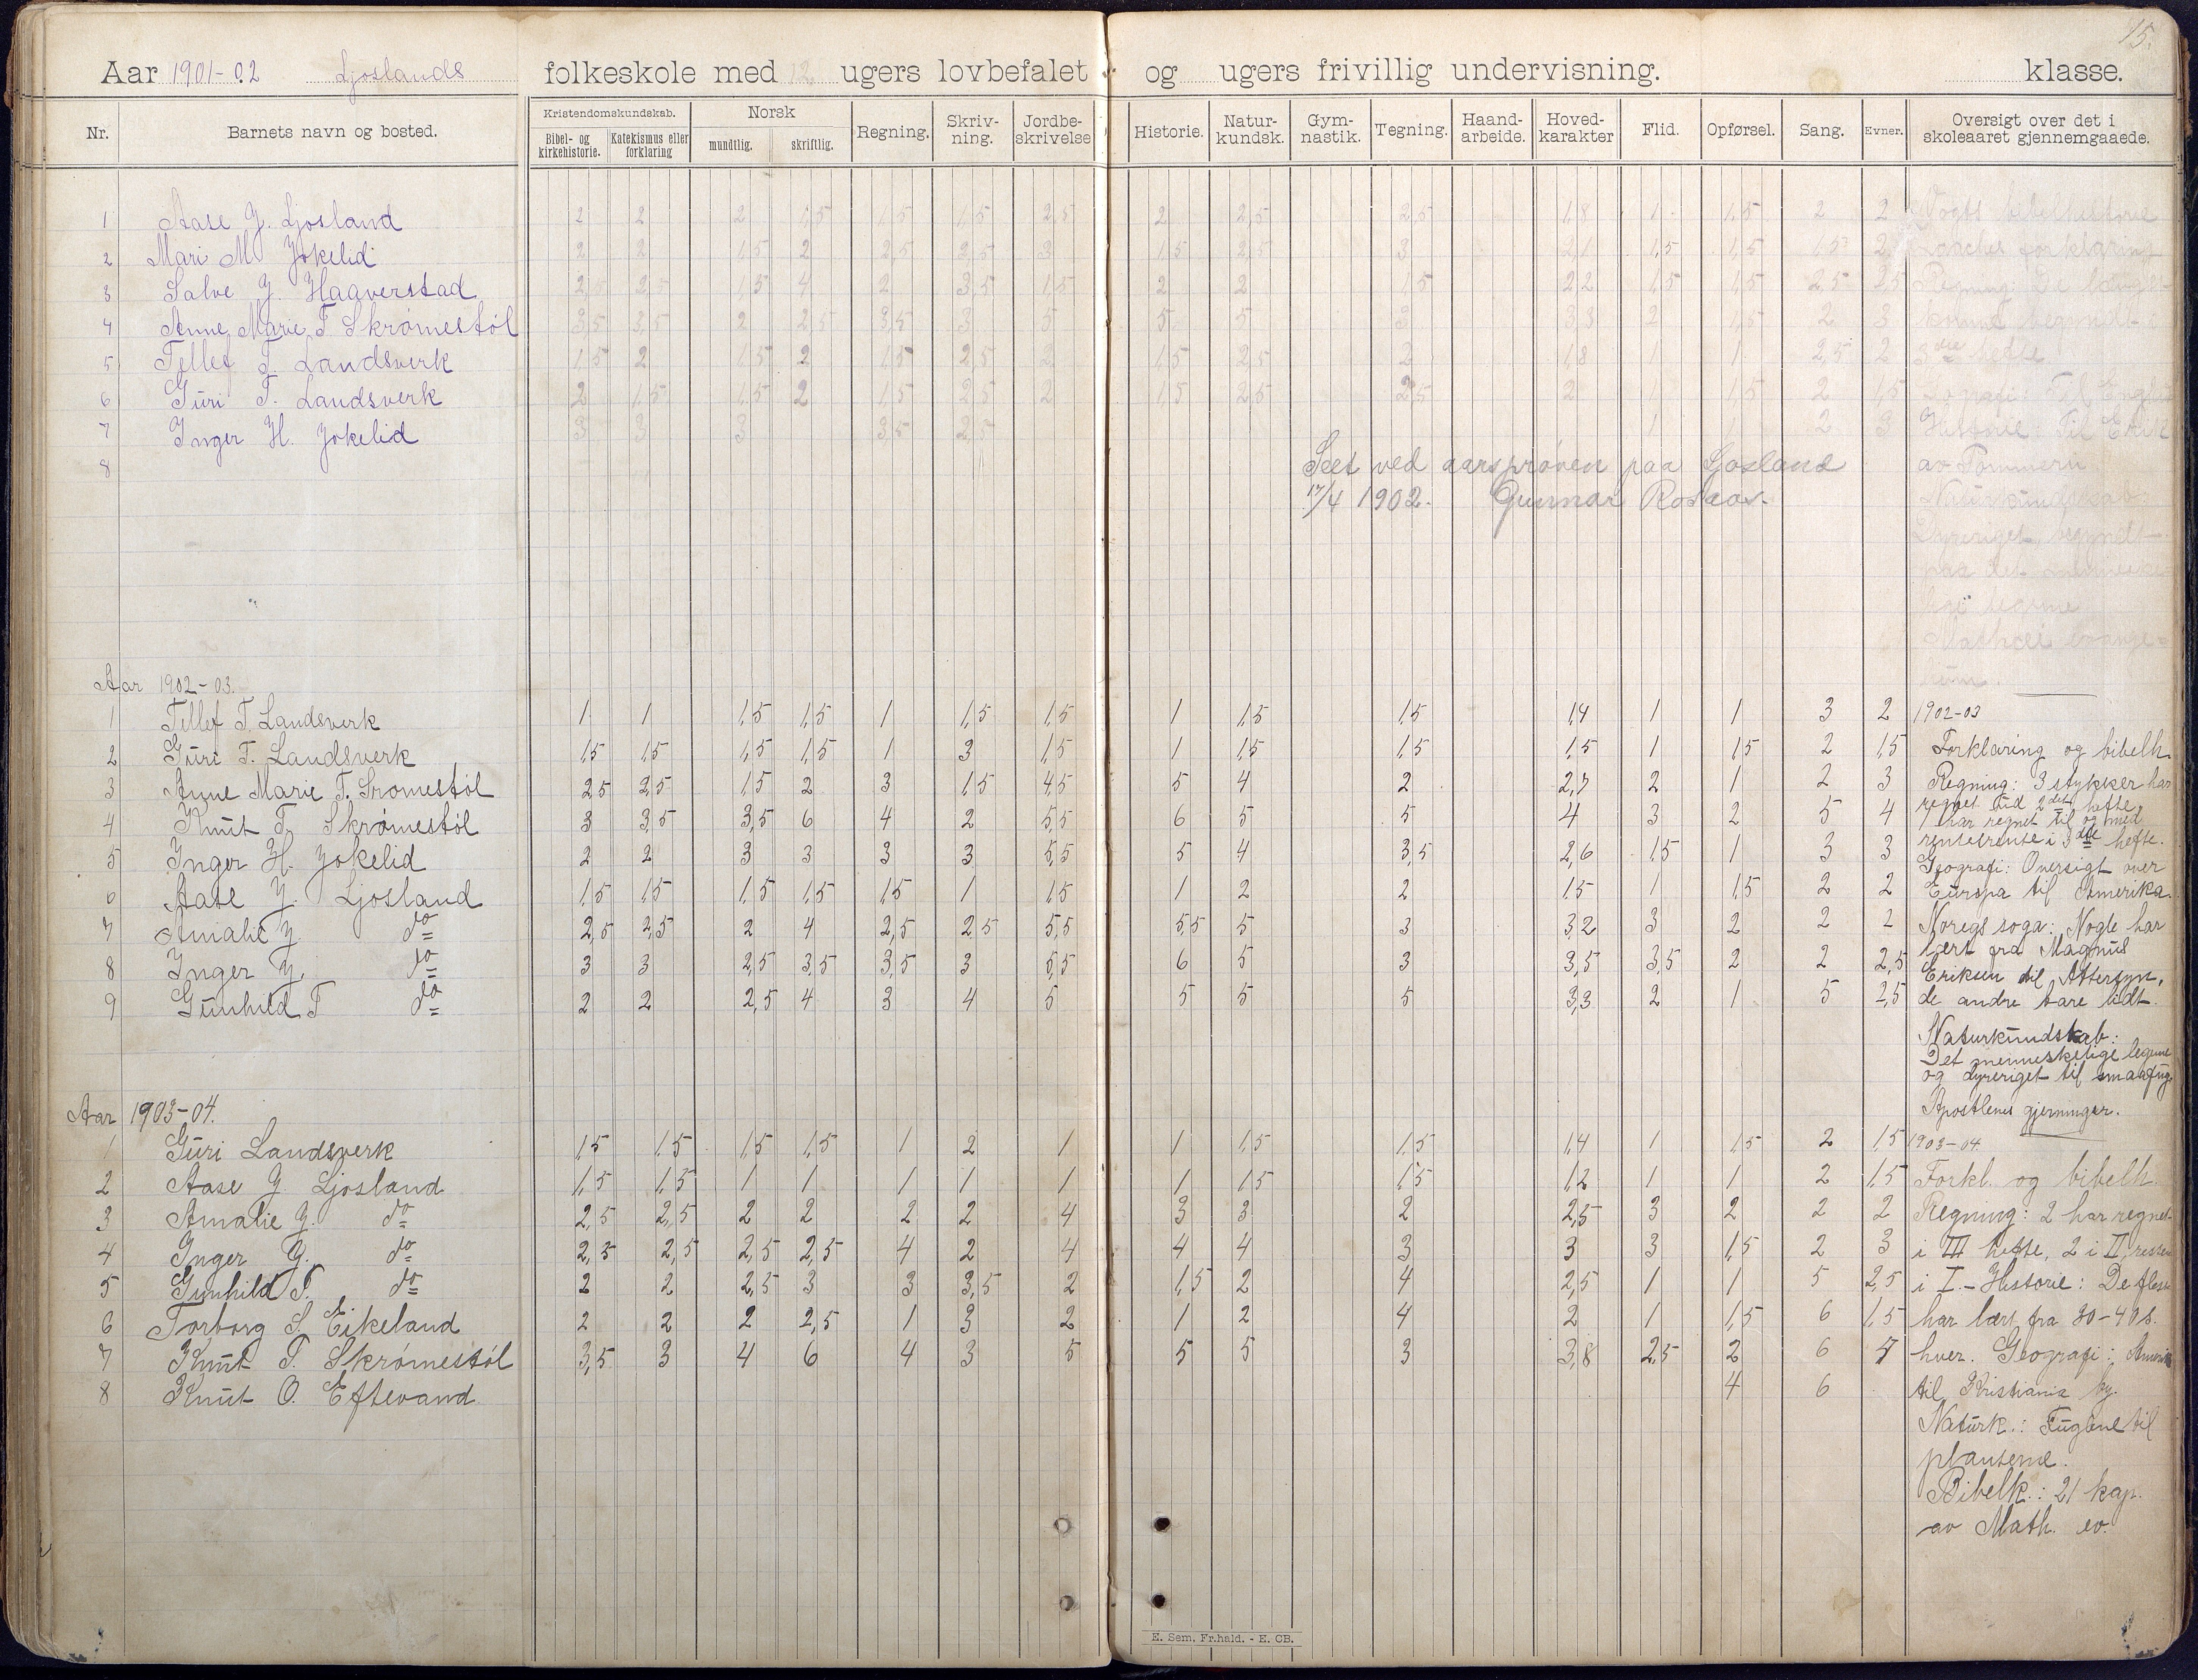 15.
Aar 1901-02 Ljoslands folkeskole med 12 ugers lovbefalet og ugers frivillig undervisning. klasse.
Nr. Barnets navn og bosted. Kristendomskundskab. Bibel- og kirkehistorie. Katekismus eller forklaring Norsk mundtlig. skriftlig. Regning. Skriv-ning. Jordbe-skrivelse Historie. Natur-kundsk. Gym-nastik. Tegning. Haand-arbeide. Hoved-karakter Flid. Opførsel. Sang. Evner. Oversigt over det i skoleaaret gjennemgaaede.
1 Aase Y. Ljosland 2 2 2 1,5 1,5 1,5 2,5 2 2,5 2,5 1,8 1 1,5 2 2 Vogts bibelhistorie
2 Mari M. Jokelid 2 2 1,5 2 2,5 2,5 3 1,5 2,5 3 2,1 1,5 1,5 1,5 2 forklaring
3 Salve Y. Haaverstad 2,5 2,5 1,5 4 2 3,5 1,5 2 2 1,5 2,2 1,5 1,5 2,5 2,5 Regning: De længst
4 Anne Marie T. Skrómestól 3,5 3,5 2 2,5 3,5 3 5 5 5 3 3,3 2 1,5 2 3 komne begyndt i
5 Tellef T. Landsverk 1,5 2 1,5 2 1,5 2,5 2 1,5 2,5 2 1,8 1 1 2,5 2 3die hefte
6 Guri T. Landsverk 2 1,5 1,5 2 1,5 2,5 2 1,5 2,5 2,5 2 1 1,5 2 1,5
7 Inger H. Jokelid 3 3 3 3,5 2,5 1 1 2 3 Historie Til Erik
8 av Pommern
Seet ved aarsprøven paa Ljosland
17/4 1902. Gunnar
Naturkundskab
Dyreriget begyndt
paa det menneske-
lige legeme
Mathæi evange-
lium.
Aar 1902-03.
1 Tellef T. Landsverk 1 1 1,5 1,5 1 1,5 1,5 1 1,5 1,5 1,4 1 1 3 2 1902-03
2 Guri T. Landsverk 1,5 1,5 1,5 1,5 1 3 1,5 1 1,5 1,5 1,5 1 1,5 2 1,5 Forklaring og bibelh.
3 Anne Marie T. Sromestól 2,5 2,5 1,5 2 3 1,5 4,5 5 4 2 2,7 2 1 2 3 Regning: 3 stykker har
regnet tid 2det hefte,
4 Knut T. Skrómestól 3 3,5 3,5 6 4 2 5,5 6 5 5 4 3 2 5 4 7 har regnet til og med
rentesrente i 3die hefte.
5 Inger H. Jokelid 2 2 3 3 3 3 5,5 5 4 3,5 2,6 1,5 1 3 3 Geografi: Oversigt over
6 Aase Y. Ljosland 1,5 1,5 1,5 1,5 1,5 1 1,5 1 2 2 1,5 1 1,5 2 2 Europa til Amerika.
7 Amalie Y. do 2,5 2,5 2 4 2,5 2,5 5,5 5,5 5 3 3,2 3 2 2 2 Noregs soga: Nogle har
lært fra Magnus
8 Inger Y. do 3 3 2,5 3,5 3,5 3 5,5 6 5 3 3,5 3,5 2 2 2,5 Eriksen til Attersyn,
9 Gunhild T do 2 2 2,5 4 3 4 5 5 5 5 3,3 2 1 5 2,5 de andre bare lidt.
Naturkundskab:
Det menneskelige legeme
og dyreriget til smaafug
Apostlenes gjerninger.
Aar 1903-04.
1 Guri Landsverk 1,5 1,5 1,5 1,5 1 2 1 1 1,5 1,5 1,4 1 1,5 2 1,5 1903-04
2 Aase Y Ljosland 1,5 1,5 1 1 1 1 1 1 1,5 1,5 1,2 1 1 2 1,5 Forkl. og bibelh.
3 Amalie Y. do 2,5 2,5 2 2 2 2 4 3 3 2 2,5 3 2 2 2 Regning: 2 har regnet
4 Inger Y. do 2,5 2,5 2,5 2,5 4 2 4 4 4 3 3 3 1,5 2 3 i III hefte, 2 i II, resten
5 Gunhild T. do 2 2 2,5 3 3 3,5 2 1,5 2 4 2,5 1 1 5 2,5 i I. - Historie: De fleste
6 Torborg S. Eikeland 2 2 2 2,5 1 3 2 1 2 4 2 1 1,5 6 1,5 har lært fra 30-40 s.
7 Knut T. Skrómestól 3,5 3 4 6 4 3 5 5 5 3 3,8 2,5 2 6 4 hver. Geografi: Amerik
8 Knut O. Eftevand 4 6 til Kristiania by.
Naturk.: Fuglene til
planterne.
Bibelk.: 21 kap.
av Math. ev.
E. Sem, Fr.hald. - E. CB.